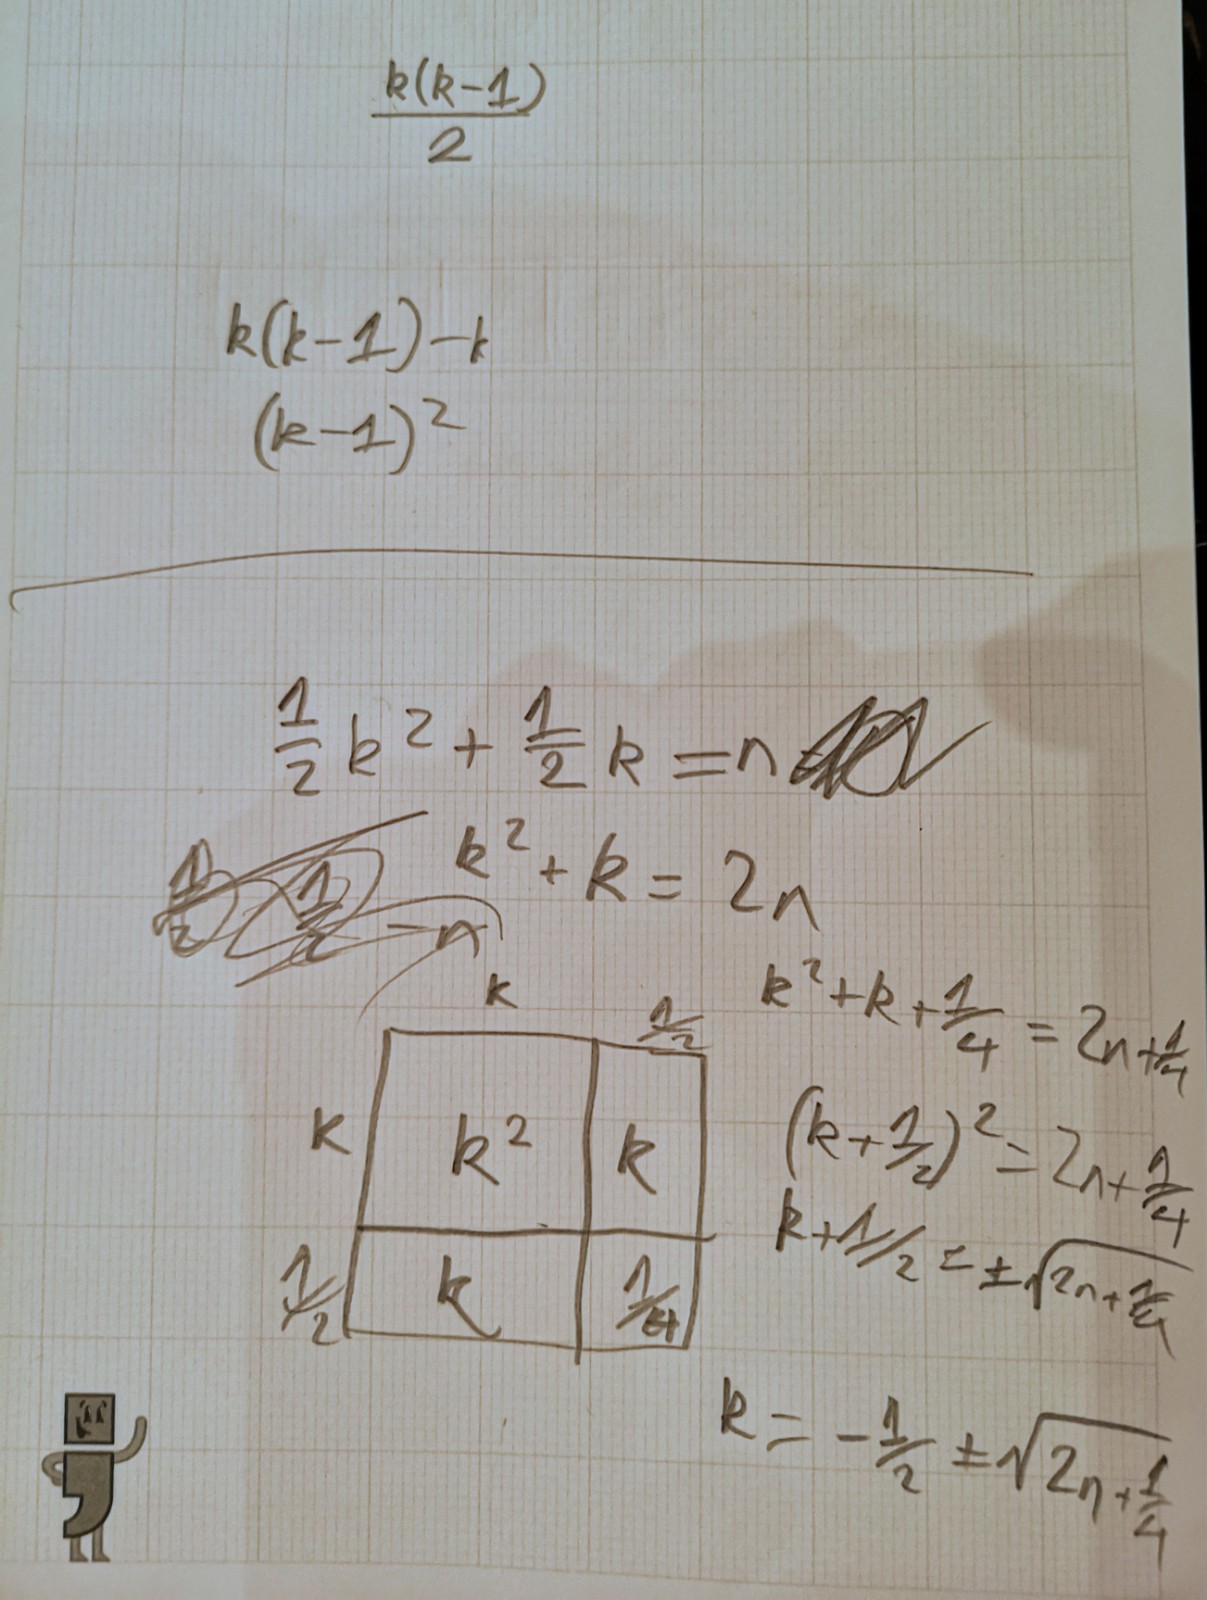 k(k-1)
2
k(k-1)-k
(k-1)²
1/2 k² + 1/2 k = n
k² + k = 2n
1/2 1/2 - n
k² + k + 1/4 = 2n + 1/4
k 1/2
k k² k
1/2 k 1/4
(k + 1/2)² = 2n + 1/4
k + 1/2 = ±√2n + 1/4
k = -1/2 ±√2n + 1/4